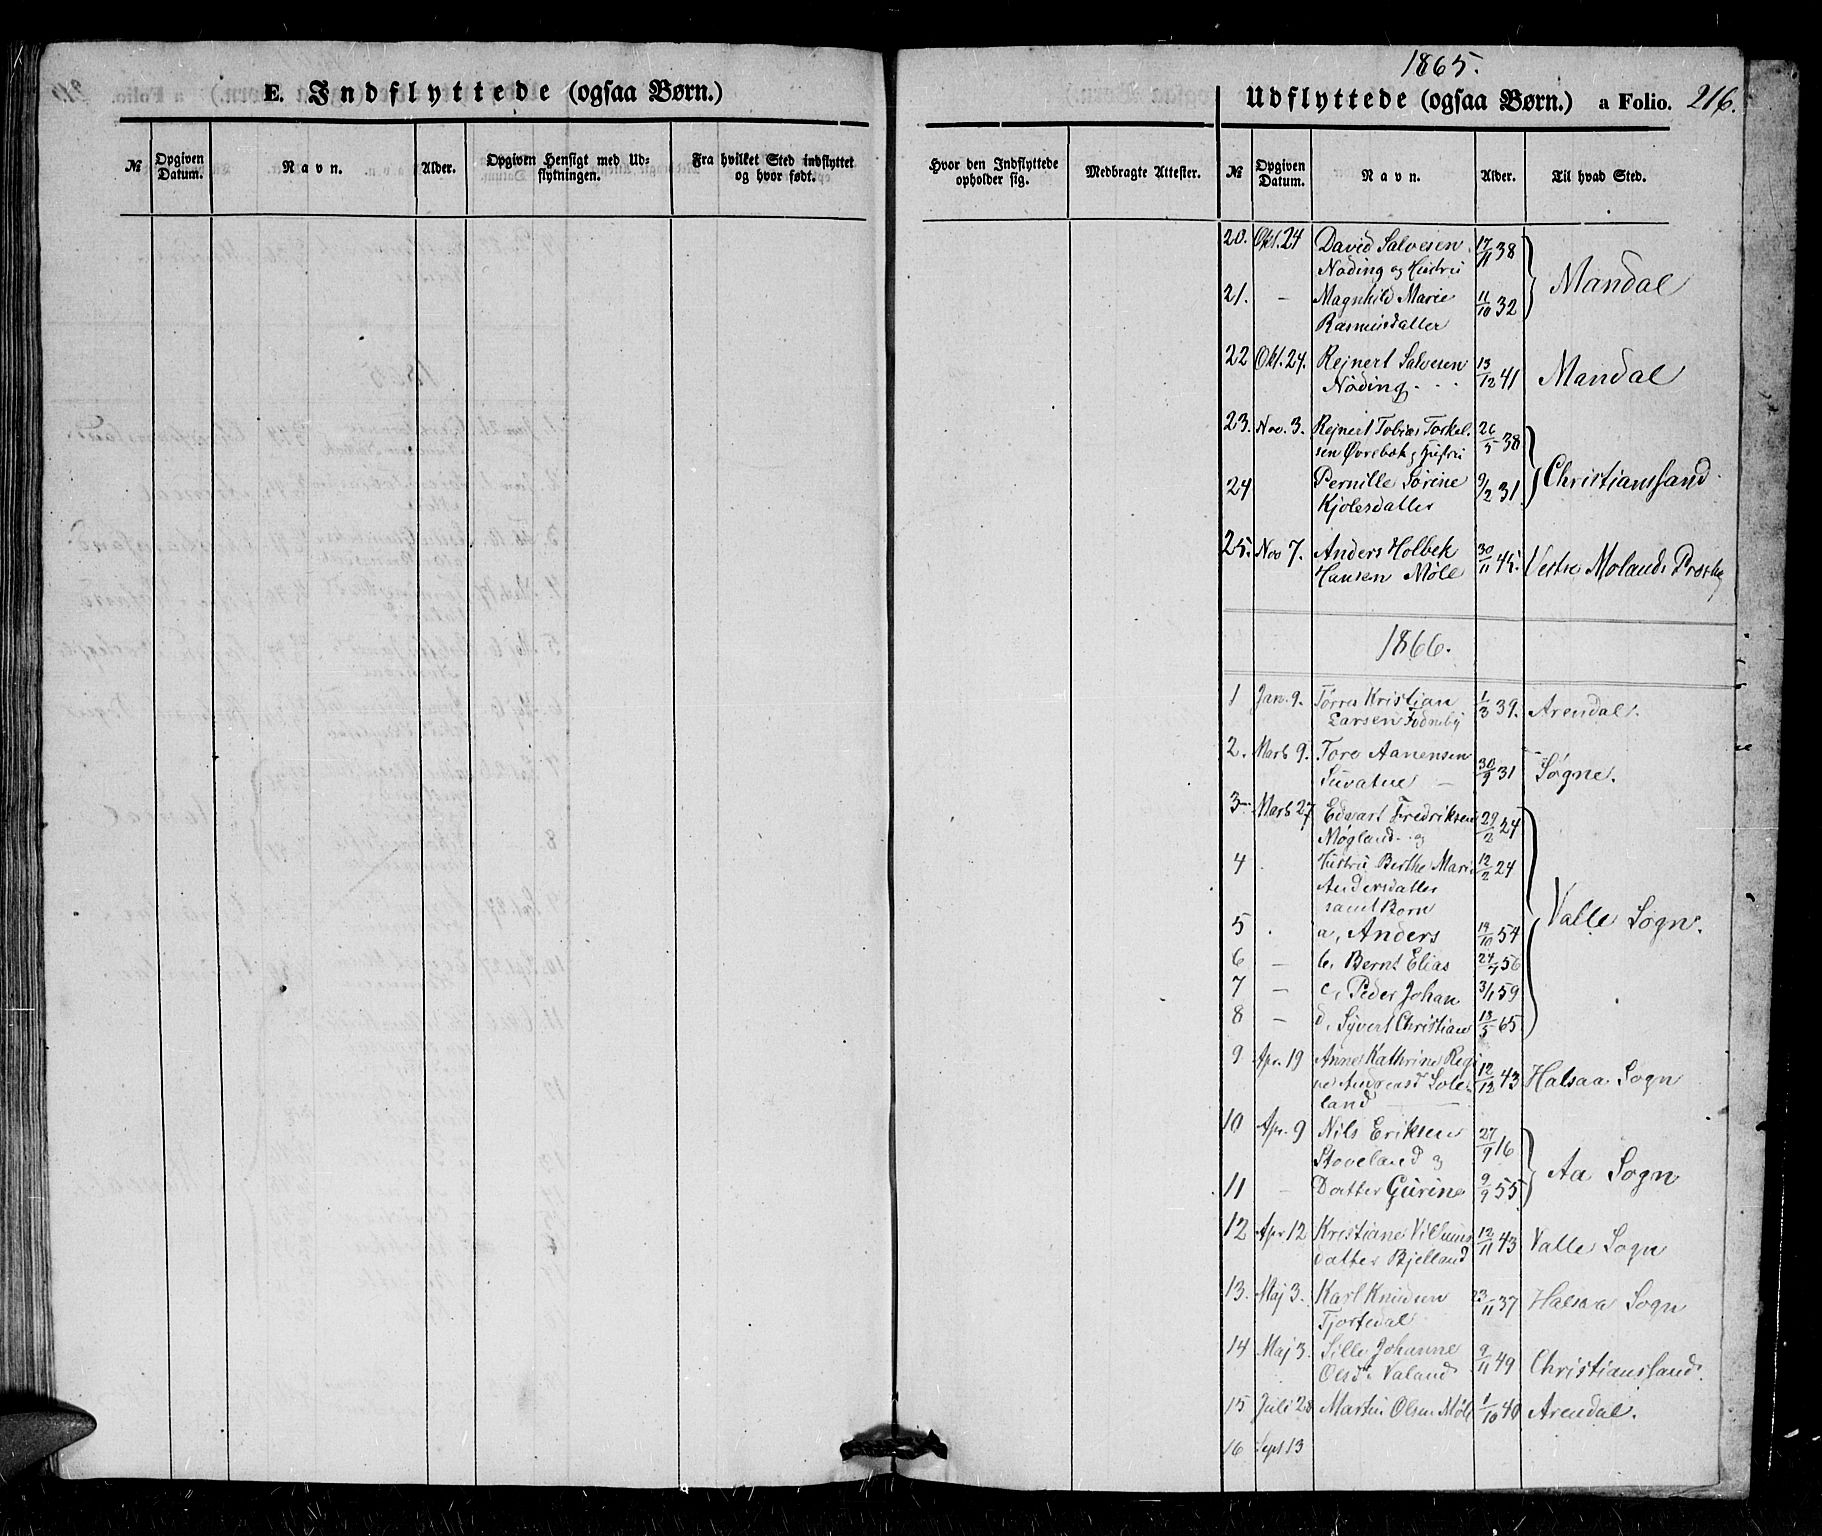 E. Indflyttede (ogsaa Børn.)
№ Opgiven Datum. Navn. Alder. Opgiven Hensigt med Udflytningen. Fra hvilket Sted indflyttet og hvor født.
1865.
Udflyttede (ogsaa Børn.) a Folio. 216.
Hvor den Indflyttede opholder sig. Medbragte Attester. № Opgiven Datum. Navn. Alder. Til hvad Sted.
20. Okt. 24 David Salvesen 17/11 38
Nøding og Hustru
Mandal
21. — Magnhild Marie 11/10 32
Rasmusdatter
22 Okt. 24. Rejnert Salvesen 13/12 41 Mandal
Nøding
23. Nov. 3. Rejnert Tobias Torkel- 26/5 38
sen Øvrebøk og Hustru
Christianssand
24 Pernille Sørine 9/2 31
Kjølesdatter
25. Nov 7. Anders Holbek 30/11 45. Vestre Molands Præstg
Hansen Møll
1866.
1 Jan. 9. Tørres Kristian 1/3 39. Arendal.
Larsen
2. Marts 9. Tore Aanensen 30/9 31 Søgne.
3 Marts 27 Edvart Fredriksen 29/2 24
Møgland og
4 Hustru Berthe Marie 12/2 24
Andersdatter
samt Børn
Valle Sogn.
5 a, Anders 14/10 54
6 — b, Bernt Elias 24/7 56
7 — c, Peder Johan 3/1 59
8 — d, Syvert Christian 13/5 65
9 Apr. 19 Anne Kathrine Regi 12/12 43 Halsaa Sogn
ne Andreasd Lole-
land
10 Apr. 9 Nils Eriksen 27/9 16
Stoveland og
Aa Sogn
11 — Datter Gurine 9/9 55
12 Apr 12 Kristiane Villums 12/11 43 Valle Sogn
datter Bjelland
13. Maj 3. Karl Knudsen 23/11 37 Halsaa Sogn
Tjortedal
14 Maj 3. Sille Johanne 9/11 49 Christianssand.
Olsdtr Valand
15 Juli 28 Martin Olsen Møll 1/10 40 Arendal.
16 Sept 13